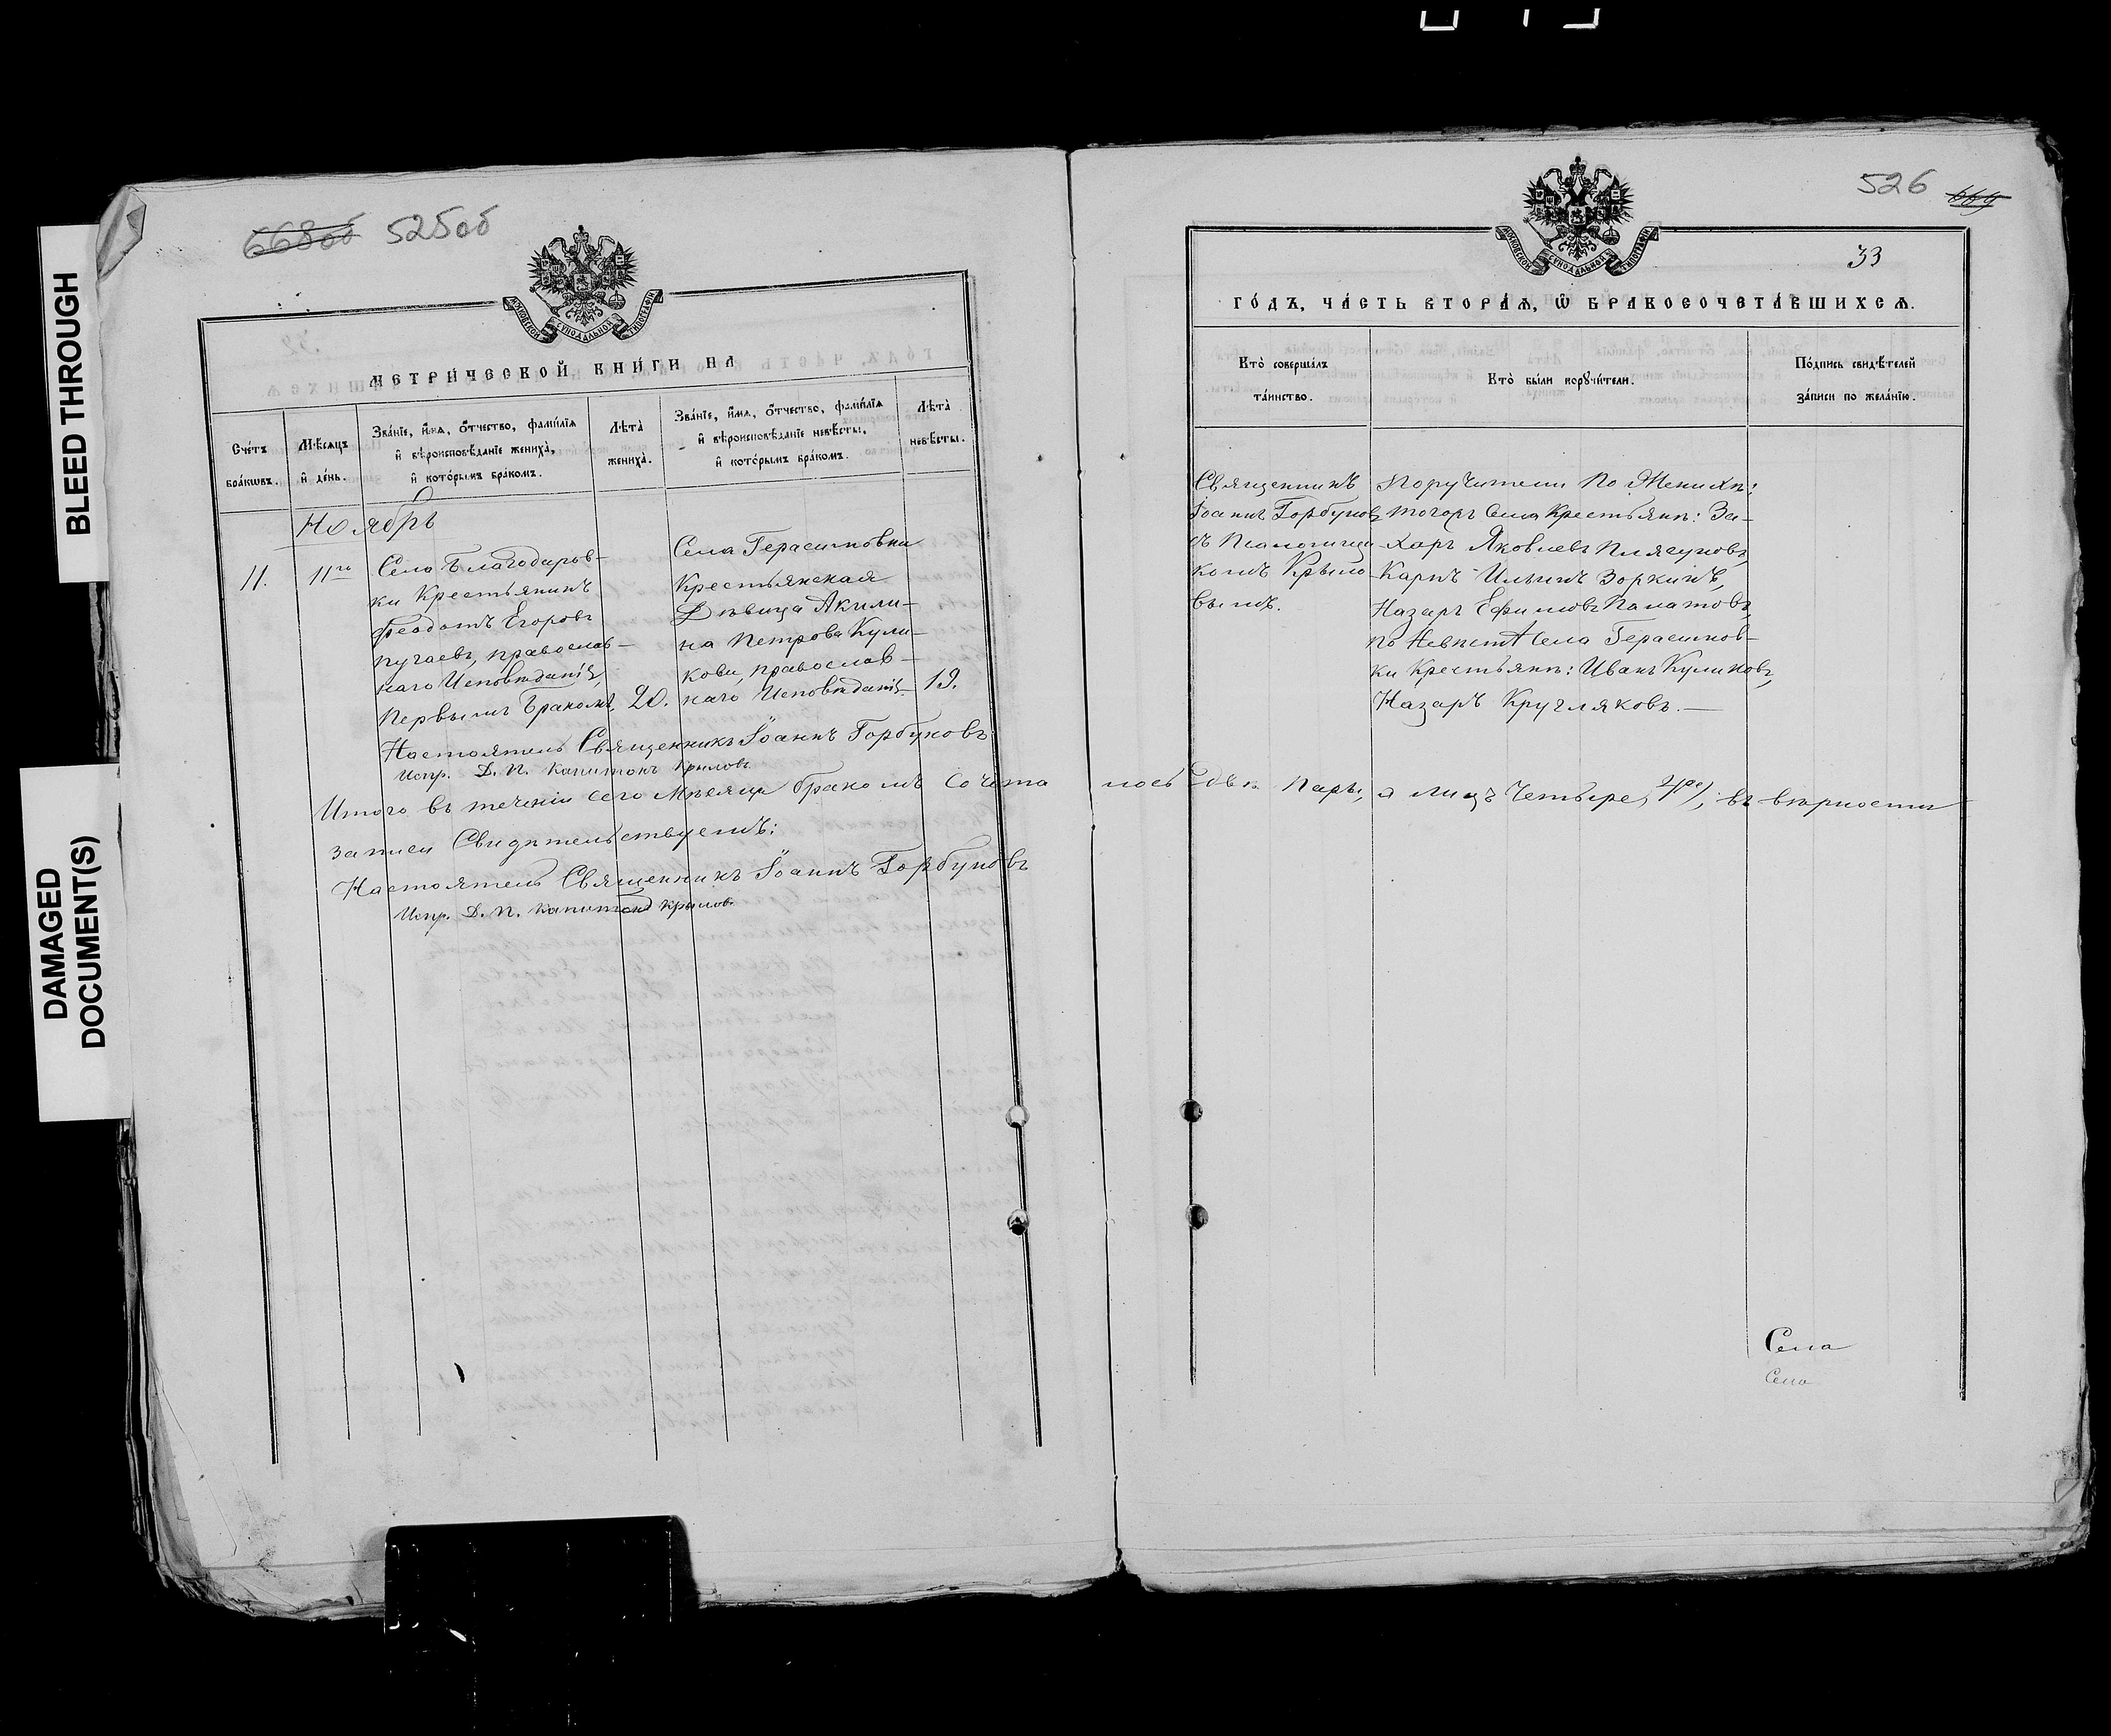 BLEED THROUGH
DAMAGED
DOCUMENT(S)
668об 525об
МОСКОВСКОЙ СУНОДАЛЬНОЙ ТИПОГРАФІИ
МЕТРИ́ЧЕСКОЙ КНИ́ГИ НА
Сче́тъ
бра́кѡвъ.
Мѣ́сѧцъ
и҆ де́нь.
Зва́нїе, и҆́мѧ, ѻ҆́тчество, фами́лїѧ
и҆ вѣроисповѣ́данїе жениха̀,
и҆ кото́рымъ бра́комъ.
Лѣ́та̀
жениха̀.
Зва́нїе, и҆́мѧ, ѻ҆́тчество, фами́лїѧ
и҆ вѣроисповѣ́данїе невѣ́сты,
и҆ кото́рымъ бра́комъ.
Лѣ́та̀
невѣ́сты.
Ноябрь
11.
11го
Села Благодаров-
ки Крестьянинъ
Феодотъ Егоровъ
Пугаевъ, православ-
наго Исповѣданія,
Первымъ Бракомъ,
20.
Села Герасимовки
Крестьянская
Дѣвица Акили-
на Петрова Кули-
кова, православ-
наго Исповѣданія
19.
Настоятель Священникъ Іоаннъ Горбуновъ
Испр. Д. П. Капитонъ Крыловъ
Итого въ теченіи сего Мѣсяца бракомъ сочета
записи Свидѣтельствуемъ:
Настоятель Священникъ Іоаннъ Горбуновъ
Испр. Д. П. Капитонъ Крыловъ
526 669
МОСКОВСКОЙ СУНОДАЛЬНОЙ ТИПОГРАФІИ
33
ГО́ДЪ, ЧА́СТЬ ВТОРА́Ѧ, Ѿ БРАКОСОЧЕТА́ВШИХСѦ.
Кто̀ соверша́лъ
та́инство.
Кто̀ бы́ли порꙋчи́тели.
По́дпись свидѣ́телей
за́писи по жела́нїю.
Священникъ
Іоаннъ Горбуновъ
съ Псаломщи
комъ Крыло
вымъ.
Поручители По Женихѣ:
тогоже Села Крестьяне: За-
харъ Яковлевъ Плясуновъ,
Карпъ Ильинъ Зоркинъ,
Назаръ Ефимовъ Палатовъ,
по Невѣстѣ Села Герасимов-
ки Крестьяне: Иванъ Куликовъ,
Назаръ Кругляковъ.
лось Двѣ Пары, а лицъ Четыре, въ вѣрности
Села
Села